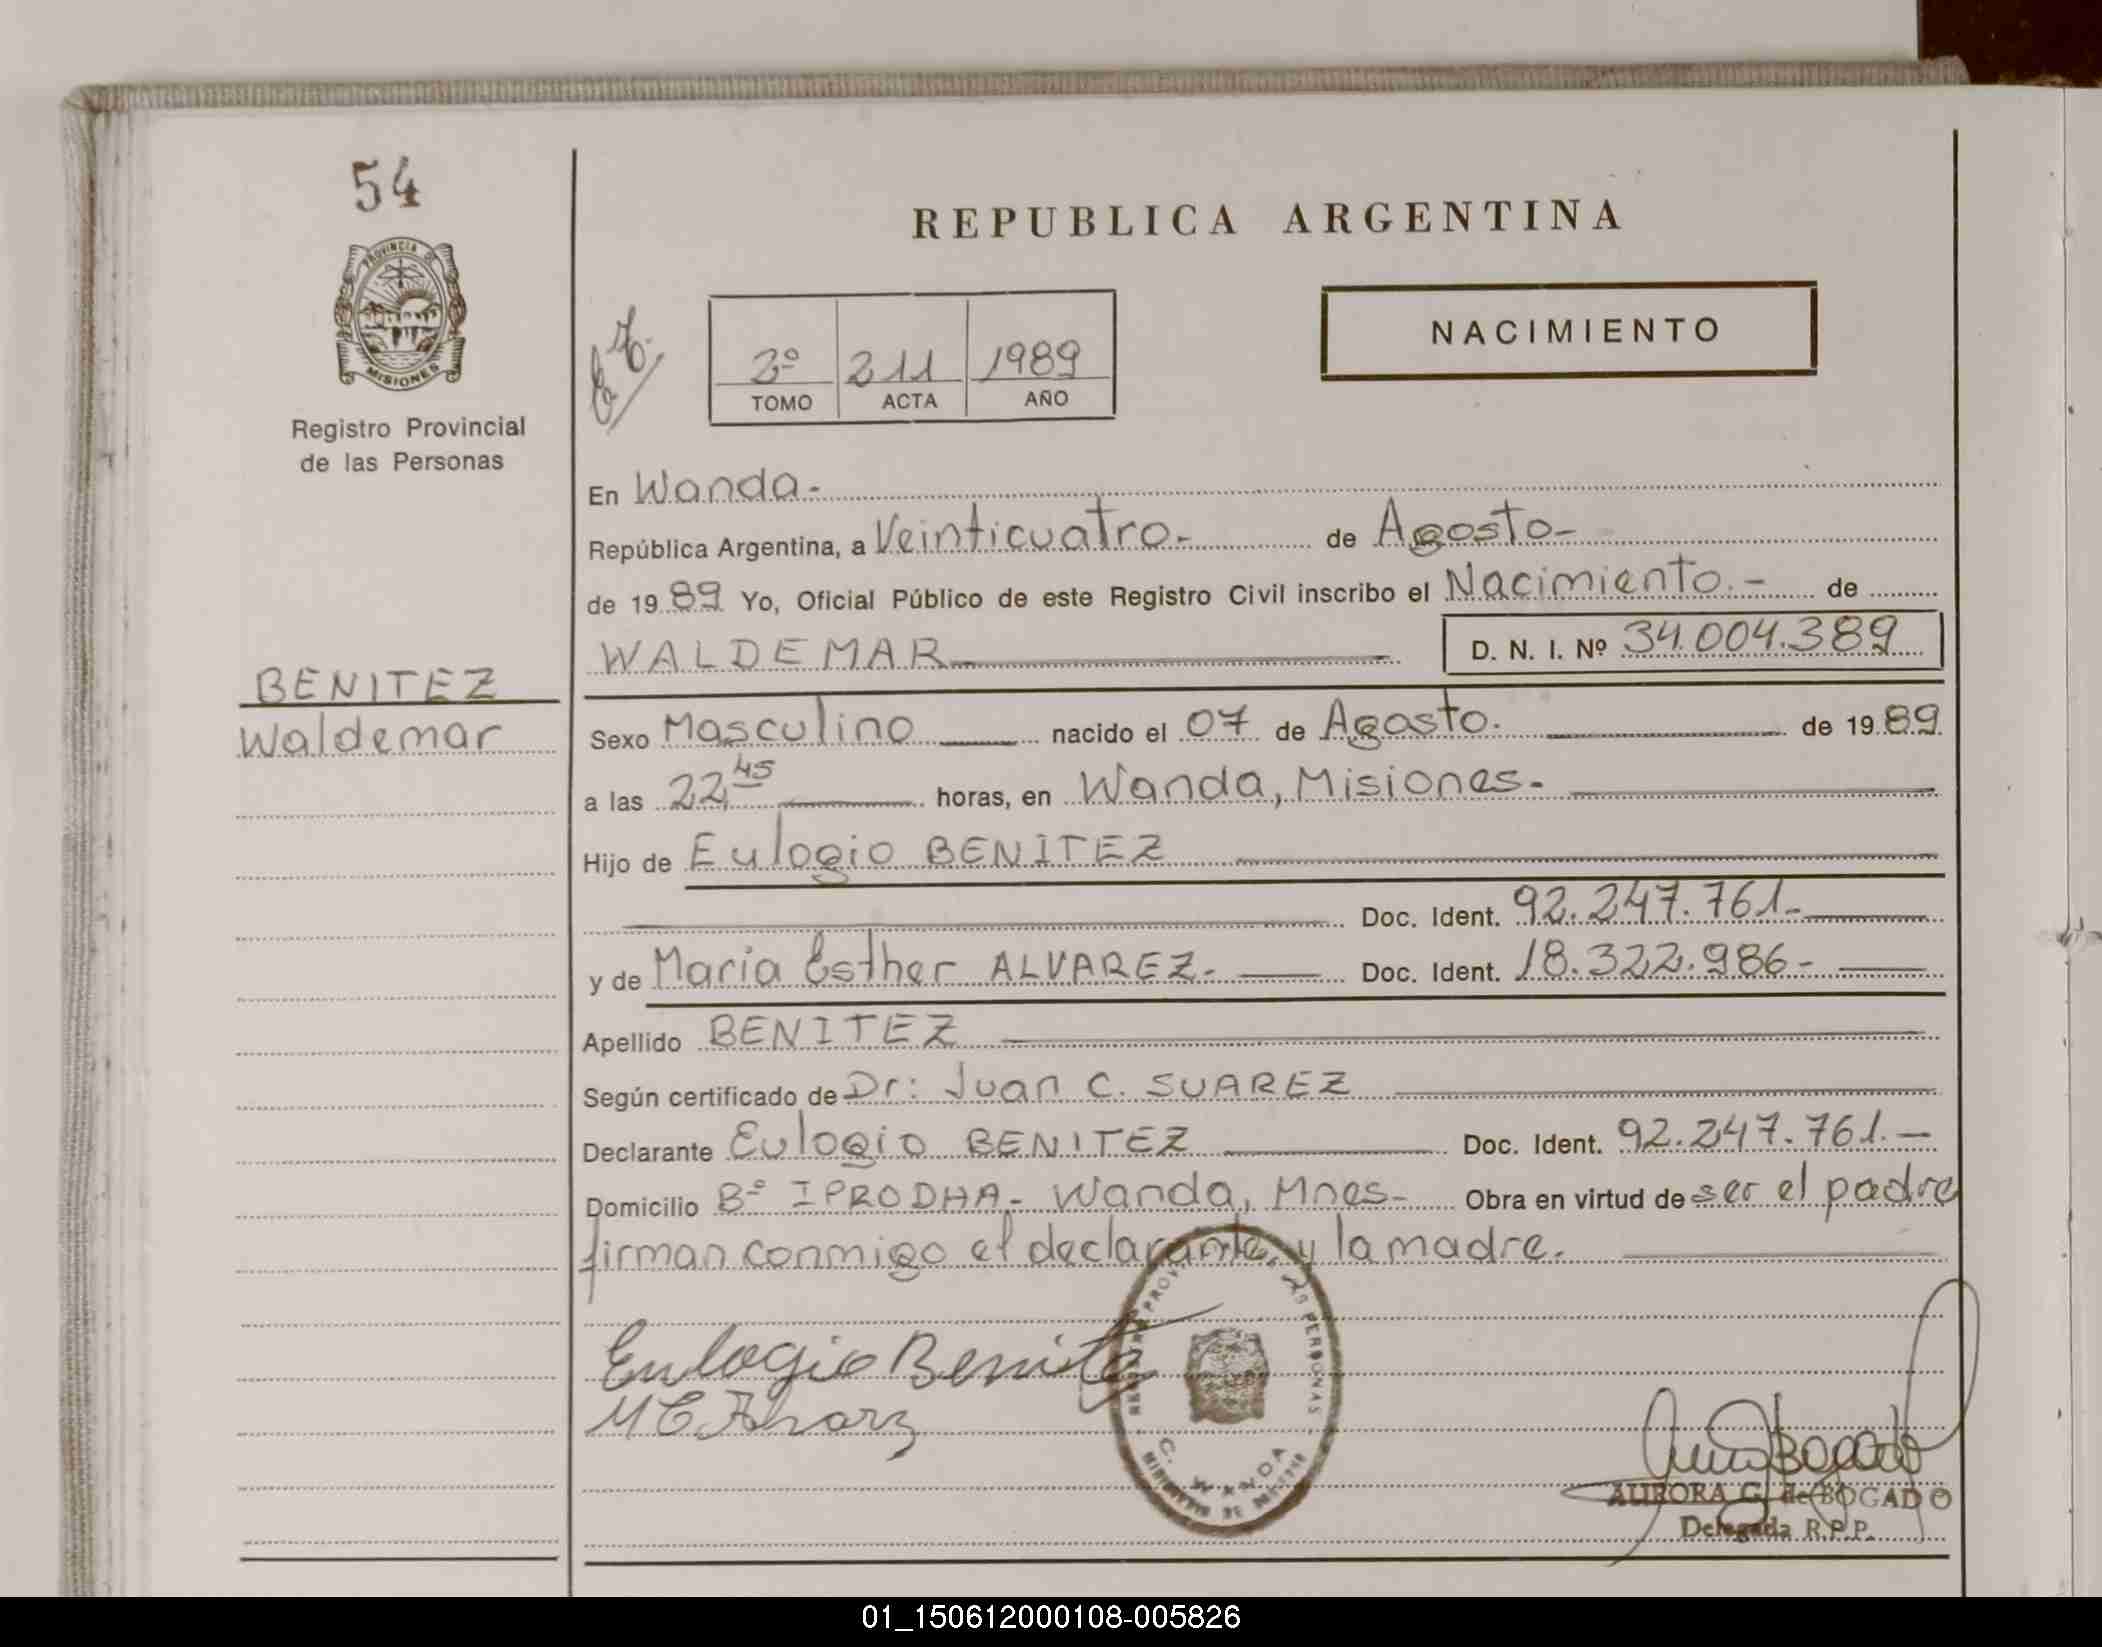 54
PROVINCIA DE
MISIONES
Registro Provincial
de las Personas
REPUBLICA ARGENTINA
NACIMIENTO
2º 211 1989
TOMO ACTA AÑO
En Wanda.-
República Argentina, a Veinticuatro.- de Agosto-
de 19 89 Yo, Oficial Público de este Registro Civil inscribo el Nacimiento.- de
WALDEMAR D. N. I. Nº 34.004.389
BENITEZ
Waldemar
Sexo Masculino nacido el 07 de Agosto. de 19 89
a las 22,45 horas, en Wanda, Misiones.-
Hijo de Eulogio BENITEZ
Doc. Ident. 92.247.761.-
y de Maria Esther ALVAREZ.- Doc. Ident. 18.322.986-
Apellido BENITEZ
Según certificado de Dr: Juan C. SUAREZ
Declarante Eulogio BENITEZ Doc. Ident. 92.247.761.-
Domicilio Bº IPRODHA.- Wanda, Mnes- Obra en virtud de ser el padre
firman conmigo el declarante y la madre.
Eulogio Benitez
C. WANDA
AURORA G. de BOGADO
Delegada R.P.P.
01_150612000108-005826